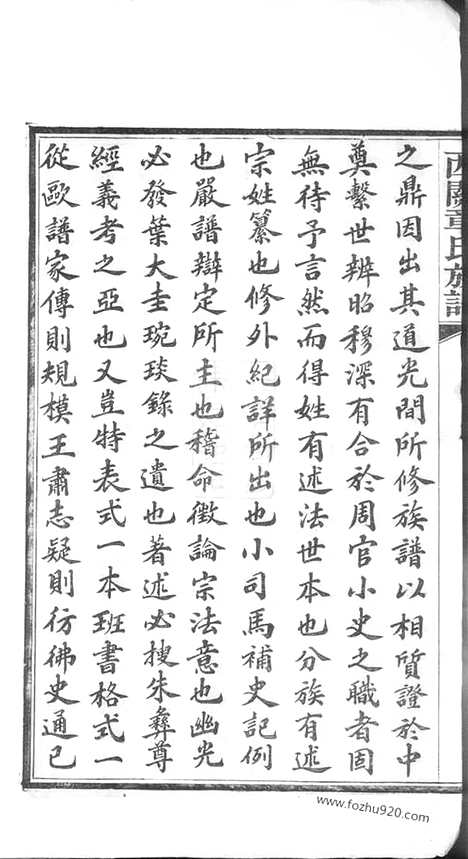 西關章氏族譜
之鼎因出其道光間所修族譜以相質證於中
奠繫世辨昭穆深有合於周官小史之職者固
無待予言然而得姓有述法世本也分族有述
宗姓纂也修外紀詳所出也小司馬補史記例
也嚴譜辯定所主也稽命徵論宗法意也幽光
必發葉大圭琬琰錄之遺也著述必搜朱彝尊
經義考之亞也又豈特表式一本班書格式一
從歐譜家傳則規模王肅志疑則彷彿史通已
www.fozhu920.com